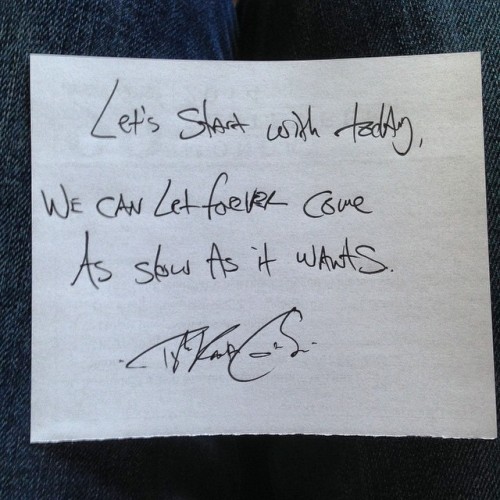 Let's Start with today,
WE CAN Let forever come
As slow As it WANTS.